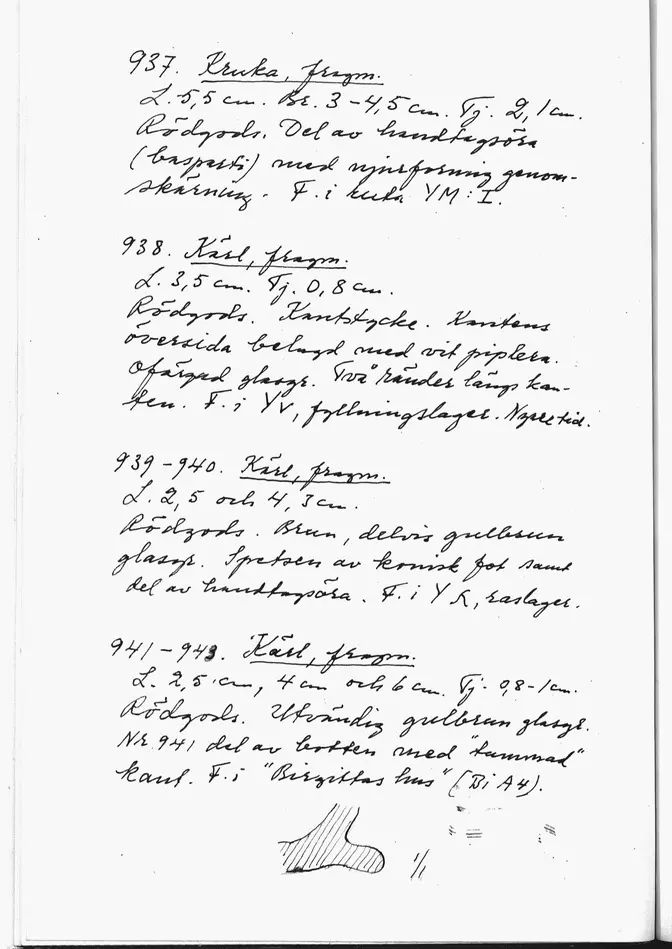 937. Kruka, fragm.
L. 5,5 cm. Br. 3-4,5 cm. Tj. 2,1 cm.
Rödgods. Del av handtagsöra
(basparti) med njurformig genom-
skärning. F. i ruta YM: I.
938. Kärl, fragm.
L. 3,5 cm. Tj. 0,8 cm.
Rödgods. Kantstycke. Kantens
översida belagd med vit piplera.
Ofärgad glasyr. Två ränder längs kan-
ten. F. i YV, fyllningslager. Nyare tid.
939-940. Kärl, fragm.
L. 2,5 och 4,3 cm.
Rödgods. Brun, delvis gulbrun
glasyr. Spetsen av konisk fot samt
del av handtagsöra. F. i Y R, raslager.
941-943. Kärl, fragm.
L. 2,5 cm, 4 cm och 6 cm. Tj. 0,8-1 cm.
Rödgods. Utvändig gulbrun glasyr.
Nr 941 del av botten med "tummad"
kant. F. i "Birgittas hus" (Bi A4).
1/1